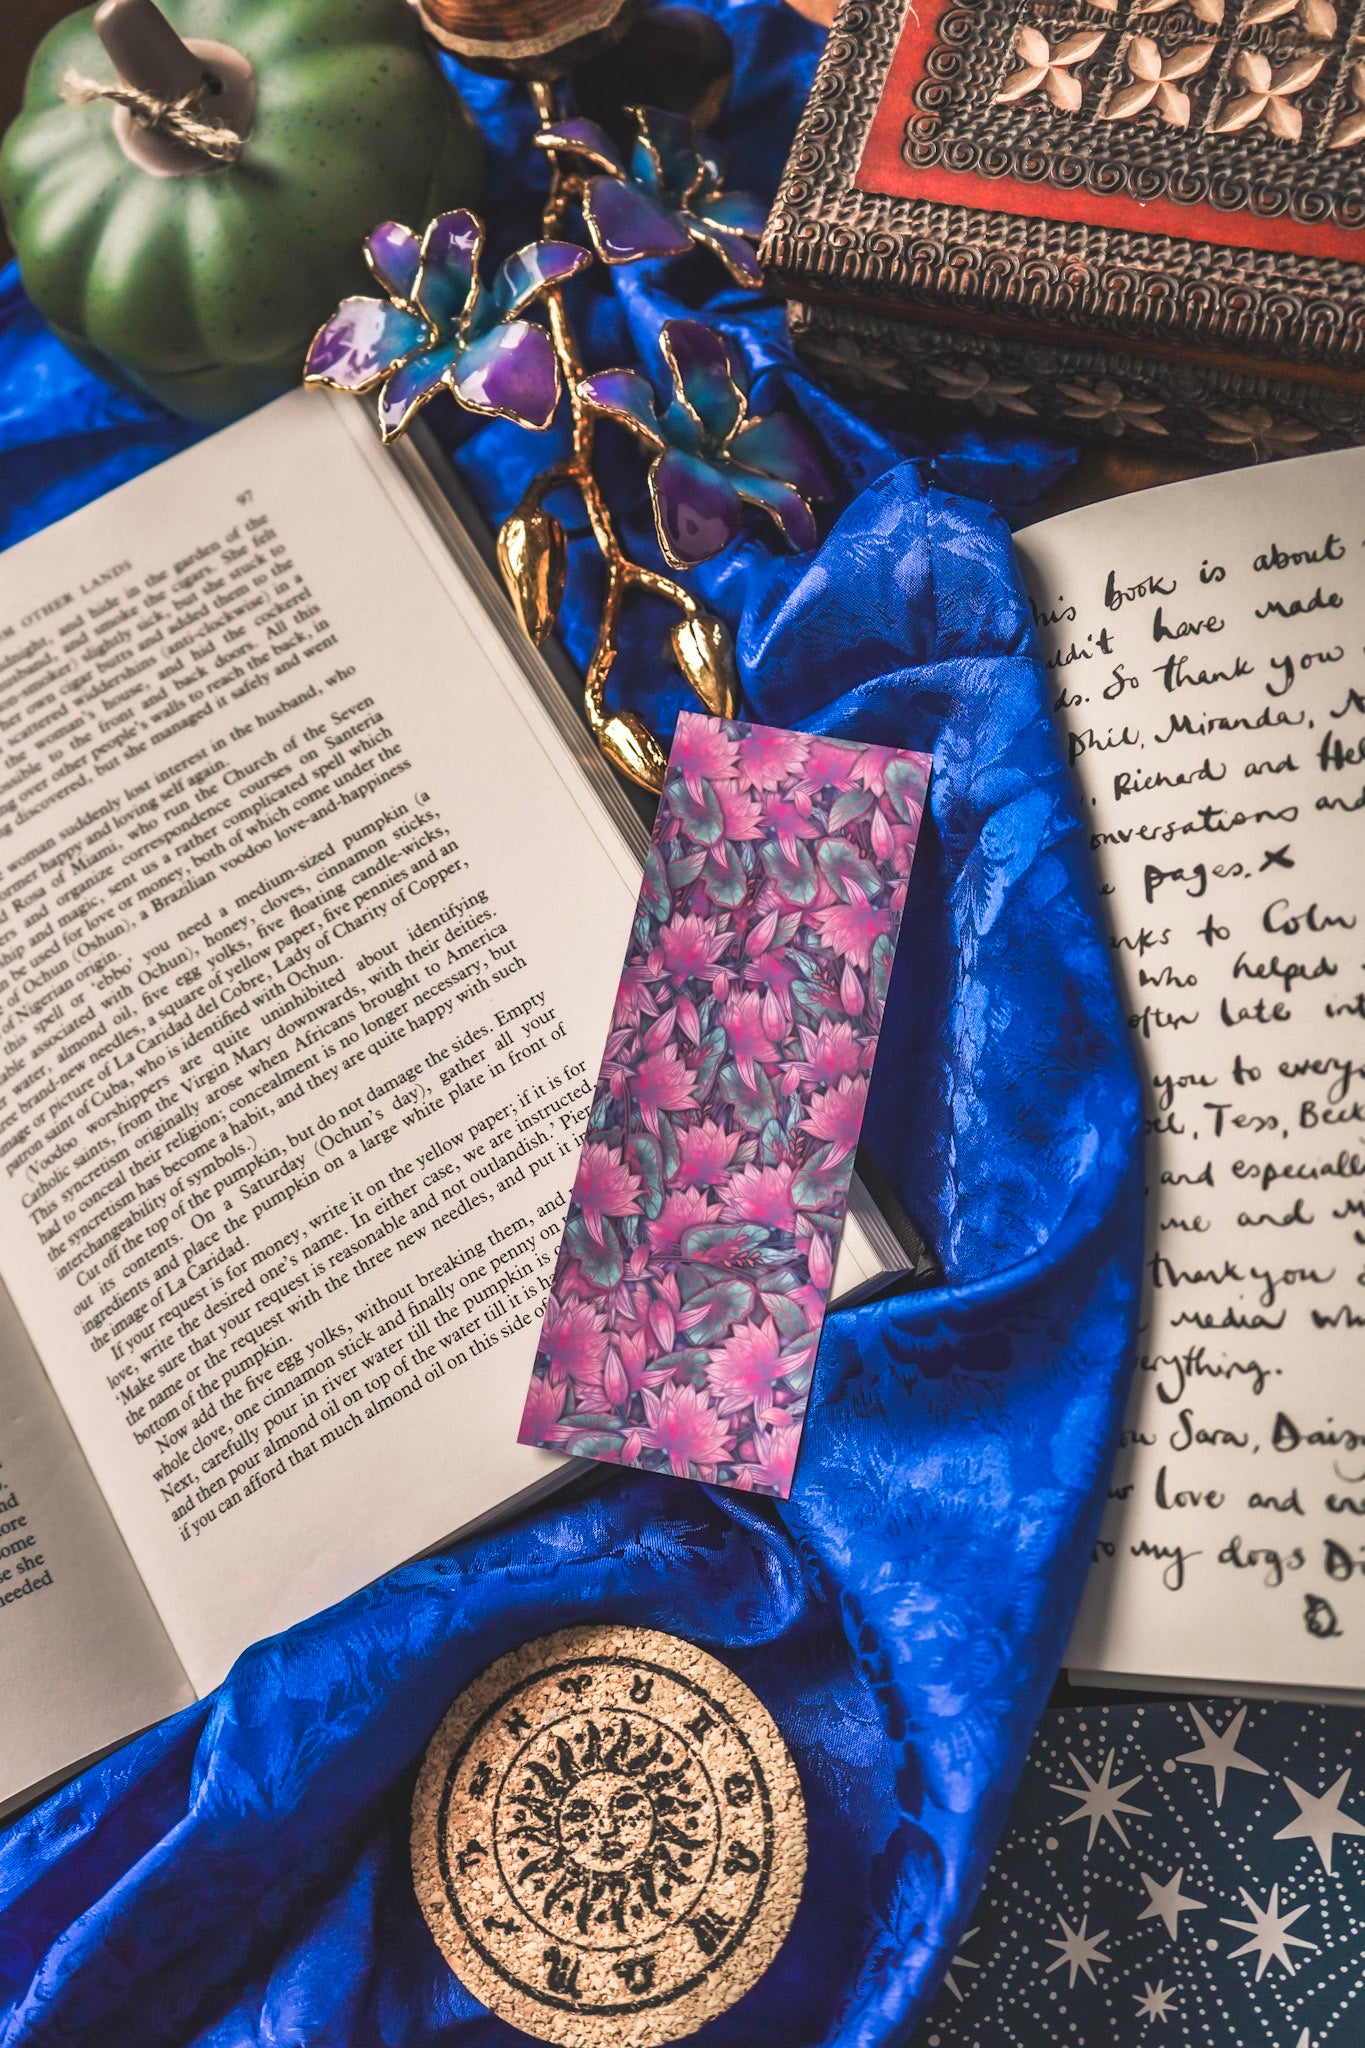 OTHER LANDS 97
and hide in the garden of the
husband, and smoke the cigars. She felt
slightly sick, but she stuck to
her own cigar butts and added them to the
scattered widdershins (anti-clockwise) in a
the woman's house, and hid the cockerel
to the front and back doors. All this
over other people's walls to reach the back, in
discovered, but she managed it safely and went
woman suddenly lost interest in the husband, who
happy and loving self again.
Rosa of Miami, who run the Church of the Seven
and organize correspondence courses on Santeria
and magic, sent us a rather complicated spell which
be used for love or money, both of which come under the
of Ochun (Oshun), a Brazilian voodoo love-and-happiness
of Nigerian origin.
this spell or 'ebbo' you need a medium-sized pumpkin (a
associated with Ochun), honey, cloves, cinnamon sticks,
water, almond oil, five egg yolks, five floating candle-wicks,
brand-new needles, a square of yellow paper, five pennies and an
image or picture of La Caridad del Cobre, Lady of Charity of Copper,
patron saint of Cuba, who is identified with Ochun.
(Voodoo worshippers are quite uninhibited about identifying
Catholic saints, from the Virgin Mary downwards, with their deities.
This syncretism originally arose when Africans brought to America
had to conceal their religion; concealment is no longer necessary, but
the syncretism has become a habit, and they are quite happy with such
interchangeability of symbols.)
Cut off the top of the pumpkin, but do not damage the sides. Empty
out its contents. On a Saturday (Ochun's day), gather all your
ingredients and place the pumpkin on a large white plate in front of
the image of La Caridad.
If your request is for money, write it on the yellow paper; if it is for
love, write the desired one's name. In either case, we are instructed,
'Make sure that your request is reasonable and not outlandish.'
the name or the request with the three new needles, and put it in
bottom of the pumpkin.
Now add the five egg yolks, without breaking them, and
whole clove, one cinnamon stick and finally one penny on
Next, carefully pour in river water till the pumpkin is
and then pour almond oil on top of the water till it is
if you can afford that much almond oil on this side of
and
she
needed
book is about
have made
So thank you
Phil, Miranda,
Richard and
conversations and
pages. x
to Colm
who helped
often late
you to
Tess,
and
me and
thank you
media
everything.
Sara, Daisy
love and
my dogs